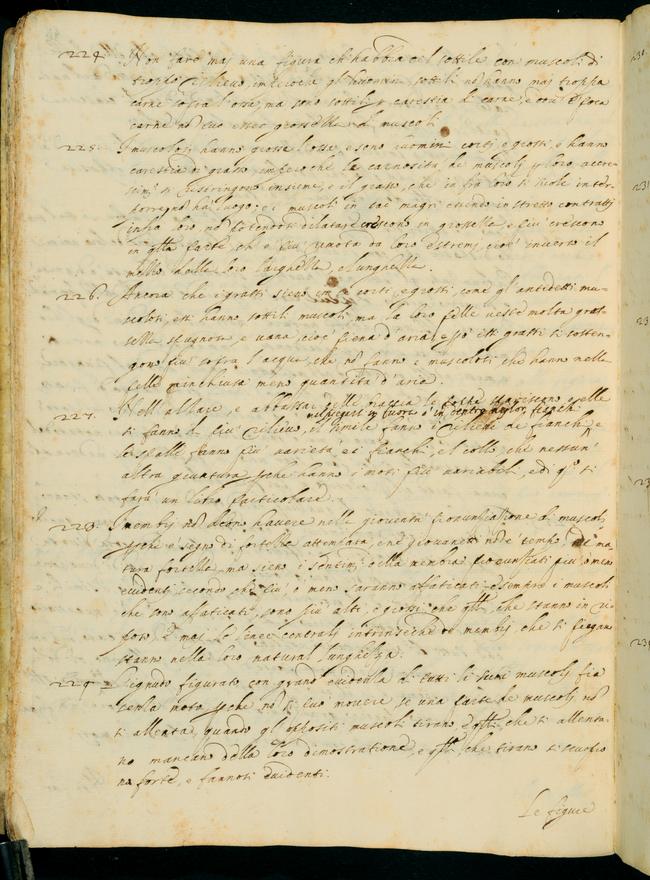 224. Non fare mai una figura ch habbia del sottile con muscoli di
troppo rilievo, imperoche gl'huomini sottili nõ hanno mai troppa
carne sopra l'osse, ma sono sottili p carestia di carne, e dov'è poca
carne nõ può esser grossezza di muscoli.
225. I muscolosi hanno grosse l'osse, e sono uomini corti, e grossi, e hanno
carestia di grasso, imperoche le carnosità de muscoli p loro accre-
scim.to si ristringono insieme, e il grasso, che in fra loro si suole inter-
porre nõ ha luogo; e i muscoli in tai magri essendo in stretto contratti
infra loro, nõ potendosi dilatare crescono in grossezza, e più crescono
in qlla parte, che è più remota da loro estremi, cioè inverso il
mezzo della loro larghezza, e lunghezza.
226. Ancora che i grassi sieno corti, e grossi, come gl'antidetti mu-
scolosi, essi hanno sottili muscoli, ma la loro pelle veste molta gras-
sezza spugnosa, e vana, cioè piena d'aria, e pò essi grassi si sosten-
gono più sopra l'acqua, che nõ fanno i muscolosi che hanno nella
pelle rinchiusa meno quantità d'aria.
227. Nell'alzare, e abbassar delle braccia le poppe spariscono, e elle
si fanno di più rilievo, il simile fanno i rilievi de fianchi
nel piegarsi in fuori, o in dentro ne lor fianchi e
le spalle fanno più varietà e i fianchi, e il collo, che nessun'
altra giuntura, pchè hanno i moti più variabili, e di qsto si
farà un libro particolare.
228. I membri nõ devon havere nella gioventù pronuntiatione di muscoli,
pchè è segno di fortezza attempata, e ne giovanetti nõ è tempo, ne ma
tura fortezza, ma sieno i sentim.ti delle membra pronuntiati più, o meno
evidenti, secondo che più, o meno saranno affaticati e sempre i muscoli
che sono affaticati, sono più alti, e grossi, che qlli, che stanno in ri-
poso. E mai le linee centrali intrinseche de membri, che si piegano
stanno nella loro natural lunghezza.
229. L'ignudo figurato con grand'evidenza di tutti li suoi muscoli fia
senza moto, pchè nõ si può movere, se una parte de muscoli nõ
si allenta, quando gl'oppositi muscoli tirano, e qlli che si allenta-
no mancano della loro dimostratione, e qlli, che tirano si scuopro
no forte, e fannosi evidenti.
Le figure